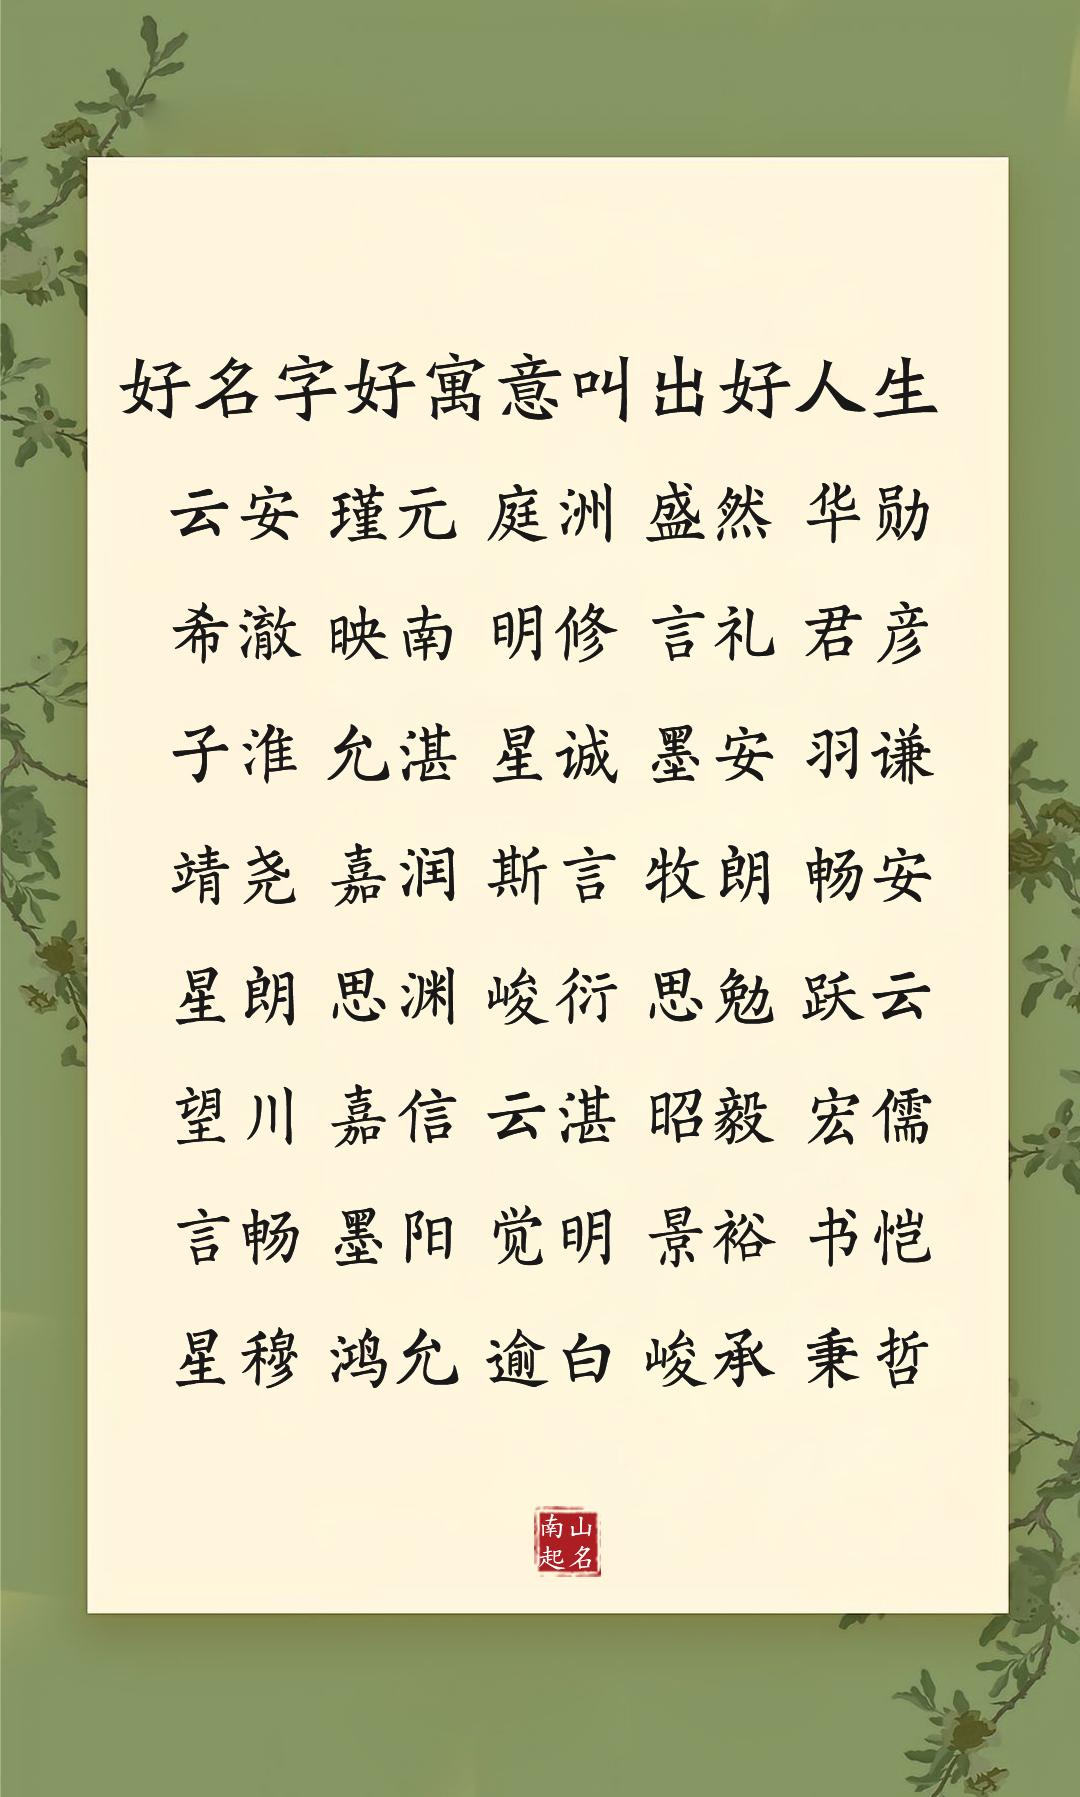 好名字好寓意叫出好人生
云安 瑾元 庭洲 盛然 华勋
希澈 映南 明修 言礼 君彦
子淮 允湛 星诚 墨安 羽谦
靖尧 嘉润 斯言 牧朗 畅安
星朗 思渊 峻衍 思勉 跃云
望川 嘉信 云湛 昭毅 宏儒
言畅 墨阳 觉明 景裕 书恺
星穆 鸿允 逾白 峻承 秉哲
南山
起名